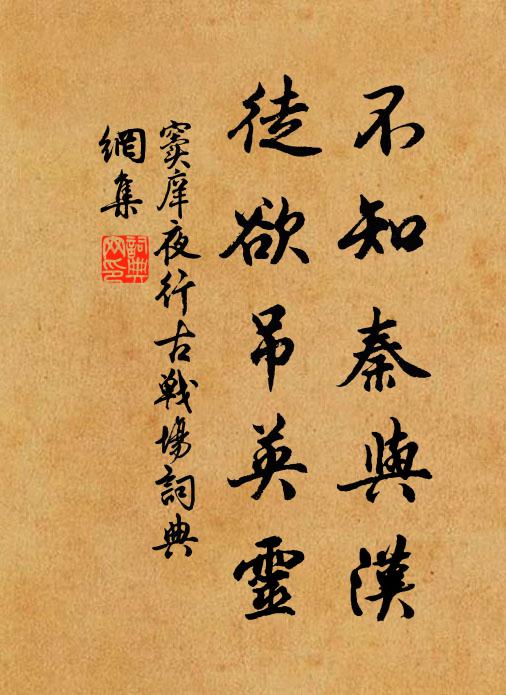 不知秦與漢
徒欲吊英靈
竇庠夜行古戰場詞典
網集
詞典網印